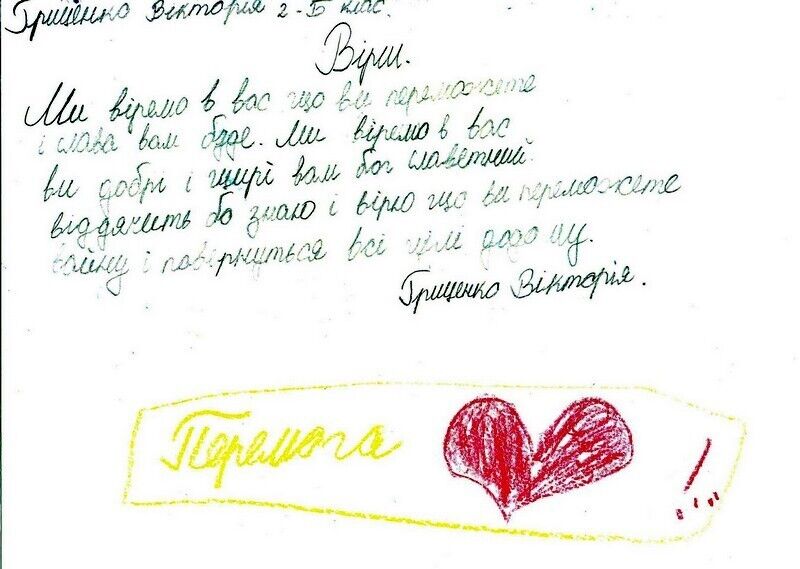 Гриценко Вікторія 2-Б клас.
Вірш.
Ми віремо в вас що ви переможете
і слава вам буде. Ми віремо в вас
ви добрі і щирі вам бог славетний
віддячить бо знаю і вірю що ви переможете
воїну і повернуться всі цілі додому.
Гриценко Вікторія.
Перемога !...